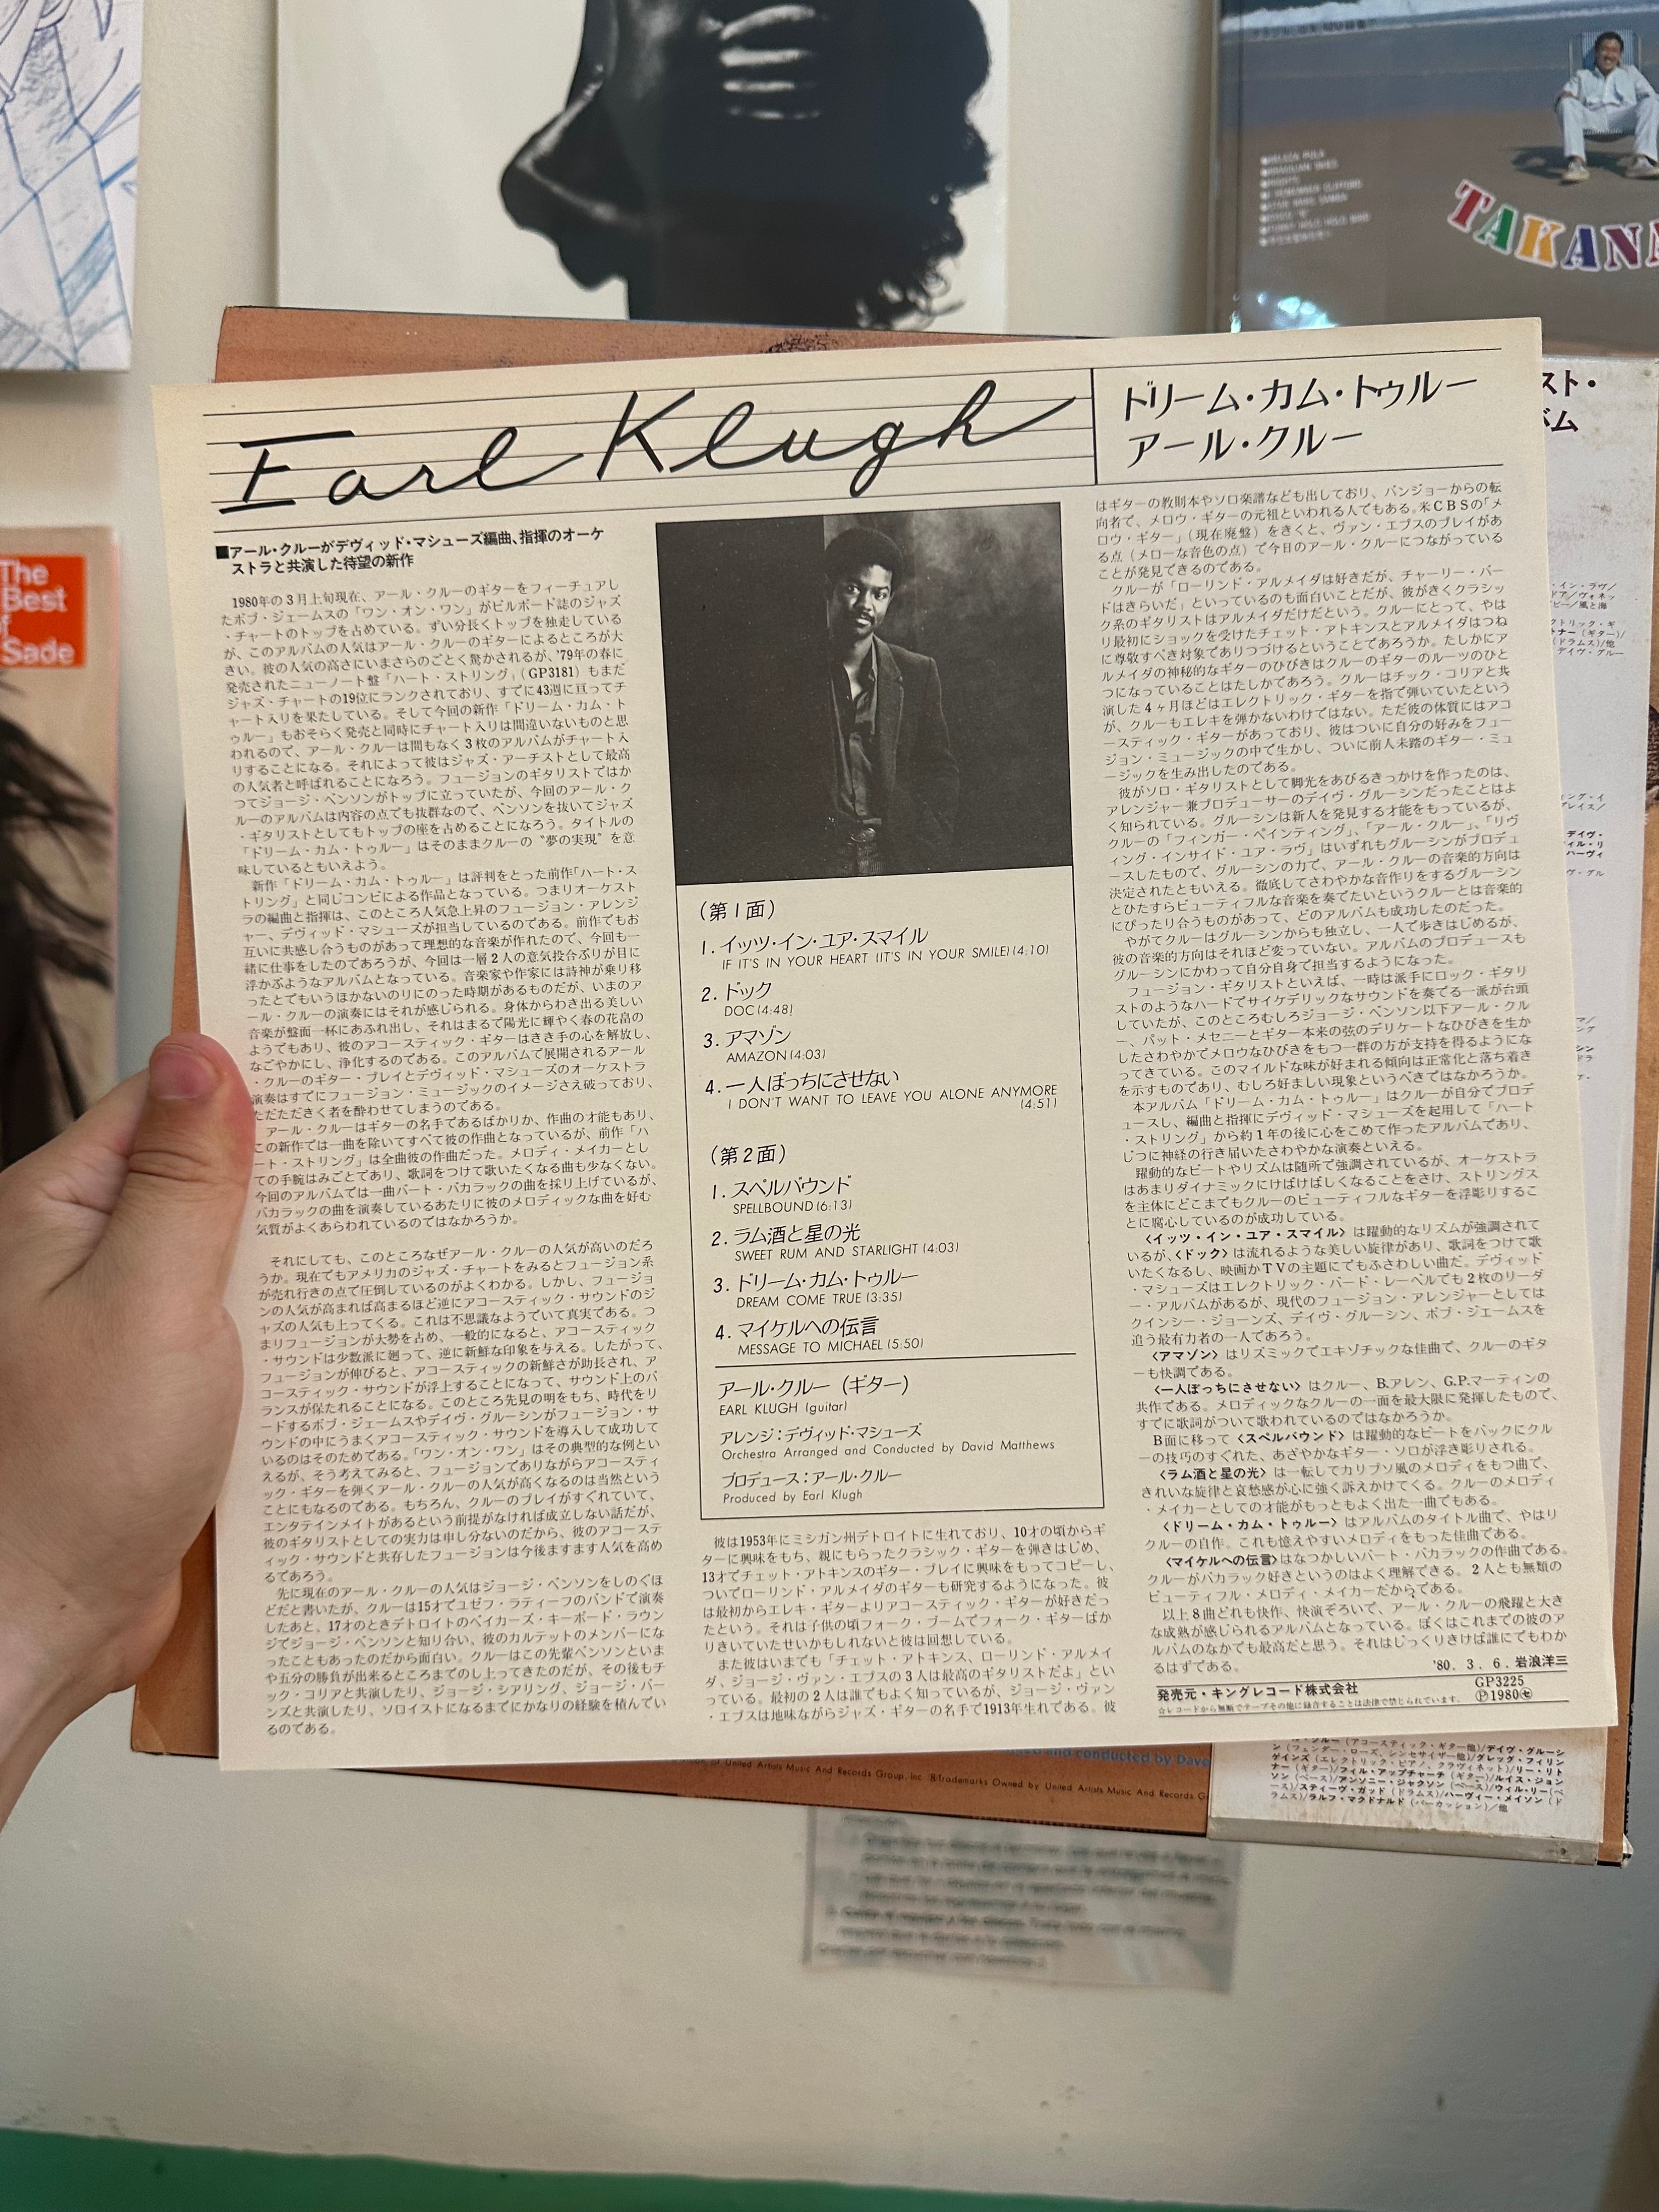 TAKANA
The
Best
of
Sade
Earl Klugh
ドリーム・カム・トゥルー
アール・クルー
スト・
バム
■アール・クルーがデヴィッド・マシューズ編曲、指揮のオーケ
ストラと共演した待望の新作
1980年の3月上旬現在、アール・クルーのギターをフィーチュアし
たボブ・ジェームスの「ワン・オン・ワン」がビルボード誌のジャズ
・チャートのトップを占めている。ずい分長くトップを独走している
が、このアルバムの人気はアール・クルーのギターによるところが大
きい。彼の人気の高さにいまさらのごとく驚かされるが、'79年の春に
発売されたニューノート盤「ハート・ストリング」(GP3181) もまだ
ジャズ・チャートの19位にランクされており、すでに43週に亘ってチ
ャート入りを果たしている。そして今回の新作「ドリーム・カム・ト
ゥルー」もおそらく発売と同時にチャート入りは間違いないものと思
われるので、アール・クルーは間もなく3枚のアルバムがチャート入
りすることになる。それによって彼はジャズ・アーチストとして最高
の人気者と呼ばれることになろう。フュージョンのギタリストではか
つてジョージ・ベンソンがトップに立っていたが、今回のアール・ク
ルーのアルバムは内容の点でも抜群なので、ベンソンを抜いてジャズ
・ギタリストとしてもトップの座を占めることになろう。タイトルの
「ドリーム・カム・トゥルー」はそのままクルーの〝夢の実現〟を意
味しているともいえよう。
新作「ドリーム・カム・トゥルー」は評判をとった前作「ハート・ス
トリング」と同じコンビによる作品となっている。つまりオーケスト
ラの編曲と指揮は、このところ人気急上昇のフュージョン・アレンジ
ャー、デヴィッド・マシューズが担当しているのである。前作でもお
互いに共感し合うものがあって理想的な音楽が作れたので、今回も一
緒に仕事をしたのであろうが、今回は一層2人の意気投合ぶりが目に
浮かぶようなアルバムとなっている。音楽家や作家には詩神が乗り移
ったとでもいうほかないのりにのった時期があるものだが、いまのア
ール・クルーの演奏にはそれが感じられる。身体からわき出る美しい
音楽が盤面一杯にあふれ出し、それはまるで陽光に輝やく春の花畠の
ようでもあり、彼のアコースティック・ギターはきき手の心を解放し、
なごやかにし、浄化するのである。このアルバムで展開されるアール
・クルーのギター・プレイとデヴィッド・マシューズのオーケストラ
演奏はすでにフュージョン・ミュージックのイメージさえ破っており、
ただただきく者を酔わせてしまうのである。
アール・クルーはギターの名手であるばかりか、作曲の才能もあり、
この新作では一曲を除いてすべて彼の作曲となっているが、前作「ハ
ート・ストリング」は全曲彼の作曲だった。メロディ・メイカーとし
ての手腕はみごとであり、歌詞をつけて歌いたくなる曲も少なくない。
今回のアルバムでは一曲バート・バカラックの曲を採り上げているが、
バカラックの曲を演奏しているあたりに彼のメロディックな曲を好む
気質がよくあらわれているのではなかろうか。
それにしても、このところなぜアール・クルーの人気が高いのだろ
うか。現在でもアメリカのジャズ・チャートをみるとフュージョン系
が売れ行きの点で圧倒しているのがよくわかる。しかし、フュージョ
ンの人気が高まれば高まるほど逆にアコースティック・サウンドのジ
ャズの人気も上ってくる。これは不思議なようでいて真実である。つ
まりフュージョンが大勢を占め、一般的になると、アコースティック
・サウンドは少数派に廻って、逆に新鮮な印象を与える。したがって、
フュージョンが伸びると、アコースティックの新鮮さが助長され、ア
コースティック・サウンドが浮上することになって、サウンド上のバ
ランスが保たれることになる。このところ先見の明をもち、時代をリ
ードするボブ・ジェームスやデイヴ・グルーシンがフュージョン・サ
ウンドの中にうまくアコースティック・サウンドを導入して成功して
いるのはそのためである。「ワン・オン・ワン」はその典型的な例とい
えるが、そう考えてみると、フュージョンでありながらアコースティ
ック・ギターを弾くアール・クルーの人気が高くなるのは当然という
ことにもなるのである。もちろん、クルーのプレイがすぐれていて、
エンタテインメイトがあるという前提がなければ成立しない話だが、
彼のギタリストとしての実力は申し分ないのだから、彼のアコーステ
ィック・サウンドと共存したフュージョンは今後ますます人気を高め
るであろう。
先に現在のアール・クルーの人気はジョージ・ベンソンをしのぐほ
どだと書いたが、クルーは15才でユゼフ・ラティーフのバンドで演奏
したあと、17才のときデトロイトのベイカーズ・キーボード・ラウン
ジでジョージ・ベンソンと知り合い、彼のカルテットのメンバーにな
ったこともあったのだから面白い。クルーはこの先輩ベンソンといま
や五分の勝負が出来るところまでのし上ってきたのだが、その後もチ
ック・コリアと共演したり、ジョージ・シアリング、ジョージ・バー
ンズと共演したり、ソロイストになるまでにかなりの経験を積んでい
るのである。
(第1面)
1. イッツ・イン・ユア・スマイル
IF IT'S IN YOUR HEART (IT'S IN YOUR SMILE) (4:10)
2. ドック
DOC (4:48)
3. アマゾン
AMAZON (4:03)
4. 一人ぼっちにさせない
I DON'T WANT TO LEAVE YOU ALONE ANYMORE
(4:51)
(第2面)
1. スペルバウンド
SPELLBOUND (6:13)
2. ラム酒と星の光
SWEET RUM AND STARLIGHT (4:03)
3. ドリーム・カム・トゥルー
DREAM COME TRUE (3:35)
4. マイケルへの伝言
MESSAGE TO MICHAEL (5:50)
アール・クルー (ギター)
EARL KLUGH (guitar)
アレンジ：デヴィッド・マシューズ
Orchestra Arranged and Conducted by David Matthews
プロデュース：アール・クルー
Produced by Earl Klugh
彼は1953年にミシガン州デトロイトに生れており、10才の頃からギ
ターに興味をもち、親にもらったクラシック・ギターを弾きはじめ、
13才でチェット・アトキンスのギター・プレイに興味をもってコピーし、
ついでローリンド・アルメイダのギターも研究するようになった。彼
は最初からエレキ・ギターよりアコースティック・ギターが好きだっ
たという。それは子供の頃フォーク・ブームでフォーク・ギターばか
りきいていたせいかもしれないと彼は回想している。
また彼はいまでも「チェット・アトキンス、ローリンド・アルメイ
ダ、ジョージ・ヴァン・エプスの3人は最高のギタリストだよ」とい
っている。最初の2人は誰でもよく知っているが、ジョージ・ヴァン
・エプスは地味ながらジャズ・ギターの名手で1913年生れである。彼
はギターの教則本やソロ楽譜なども出しており、バンジョーからの転
向者で、メロウ・ギターの元祖といわれる人でもある。米CBSの「メ
ロウ・ギター」(現在廃盤) をきくと、ヴァン・エプスのプレイがあ
る点 (メローな音色の点) で今日のアール・クルーにつながっている
ことが発見できるのである。
クルーが「ローリンド・アルメイダは好きだが、チャーリー・バー
ドはきらいだ」といっているのも面白いことだが、彼がきくクラシッ
ク系のギタリストはアルメイダだけだという。クルーにとって、やは
り最初にショックを受けたチェット・アトキンスとアルメイダはつね
に尊敬すべき対象でありつづけるということであろうか。たしかにア
ルメイダの神秘的なギターのひびきはクルーのギターのルーツのひと
つになっていることはたしかであろう。クルーはチック・コリアと共
演した4ヶ月ほどはエレクトリック・ギターを指で弾いていたという
が、クルーもエレキを弾かないわけではない。ただ彼の体質にはアコ
ースティック・ギターがあっており、彼はついに自分の好みをフュー
ジョン・ミュージックの中で生かし、ついに前人未踏のギター・ミュ
ージックを生み出したのである。
彼がソロ・ギタリストとして脚光をあびるきっかけを作ったのは、
アレンジャー兼プロデューサーのデイヴ・グルーシンだったことはよ
く知られている。グルーシンは新人を発見する才能をもっているが、
クルーの「フィンガー・ペインティング」、「アール・クルー」、「リヴ
ィング・インサイド・ユア・ラヴ」はいずれもグルーシンがプロデュ
ースしたもので、グルーシンの力で、アール・クルーの音楽的方向は
決定されたともいえる。徹底してさわやかな音作りをするグルーシン
とひたすらビューティフルな音楽を奏でたいというクルーとは音楽的
にぴったり合うものがあって、どのアルバムも成功したのだった。
やがてクルーはグルーシンからも独立し、一人で歩きはじめるが、
彼の音楽的方向はそれほど変っていない。アルバムのプロデュースも
グルーシンにかわって自分自身で担当するようになった。
フュージョン・ギタリストといえば、一時は派手にロック・ギタリ
ストのようなハードでサイケデリックなサウンドを奏でる一派が台頭
していたが、このところむしろジョージ・ベンソン以下アール・クル
ー、パット・メセニーとギター本来の弦のデリケートなひびきを生か
したさわやかでメロウなひびきをもつ一群の方が支持を得るようにな
ってきている。このマイルドな味が好まれる傾向は正常化と落ち着き
を示すものであり、むしろ好ましい現象というべきではなかろうか。
本アルバム「ドリーム・カム・トゥルー」はクルーが自分でプロデ
ュースし、編曲と指揮にデヴィッド・マシューズを起用して「ハート
・ストリング」から約1年の後に心をこめて作ったアルバムであり、
じつに神経の行き届いたさわやかな演奏といえる。
躍動的なビートやリズムは随所で強調されているが、オーケストラ
はあまりダイナミックにけばけばしくなることをさけ、ストリングス
を主体にどこまでもクルーのビューティフルなギターを浮彫りするこ
とに腐心しているのが成功している。
〈イッツ・イン・ユア・スマイル〉は躍動的なリズムが強調されて
いるが、〈ドック〉は流れるような美しい旋律があり、歌詞をつけて歌
いたくなるし、映画かTVの主題にでもふさわしい曲だ。デヴィッド
・マシューズはエレクトリック・バード・レーベルでも2枚のリーダ
ー・アルバムがあるが、現代のフュージョン・アレンジャーとしては
クインシー・ジョーンズ、デイヴ・グルーシン、ボブ・ジェームスを
追う最有力者の一人であろう。
〈アマゾン〉はリズミックでエキゾチックな佳曲で、クルーのギタ
ーも快調である。
〈一人ぼっちにさせない〉はクルー、B.アレン、G.P.マーティンの
共作である。メロディックなクルーの一面を最大限に発揮したもので、
すでに歌詞がついて歌われているのではなかろうか。
B面に移って〈スペルバウンド〉は躍動的なビートをバックにクル
ーの技巧のすぐれた、あざやかなギター・ソロが浮き彫りされる。
〈ラム酒と星の光〉は一転してカリプソ風のメロディをもつ曲で、
きれいな旋律と哀愁感が心に強く訴えかけてくる。クルーのメロディ
・メイカーとしての才能がもっともよく出た一曲でもある。
〈ドリーム・カム・トゥルー〉はアルバムのタイトル曲で、やはり
クルーの自作。これも憶えやすいメロディをもった佳曲である。
〈マイケルへの伝言〉はなつかしいバート・バカラックの作曲である。
クルーがバカラック好きというのはよく理解できる。2人とも無類の
ビューティフル・メロディ・メイカーだからである。
以上8曲どれも快作、快演ぞろいで、アール・クルーの飛躍と大き
な成熟が感じられるアルバムとなっている。ぼくはこれまでの彼のア
ルバムのなかでも最高だと思う。それはじっくりきけば誰にでもわか
るはずである。
'80. 3. 6. 岩浪洋三
発売元・キングレコード株式会社
GP3225
☆レコードから無断でテープその他に録音することは法律で禁じられています。
Ⓟ1980
and conducted by Dave
of United Artists Music And Records Group, Inc. ®Trademarks Owned by United Artists Music And Records G